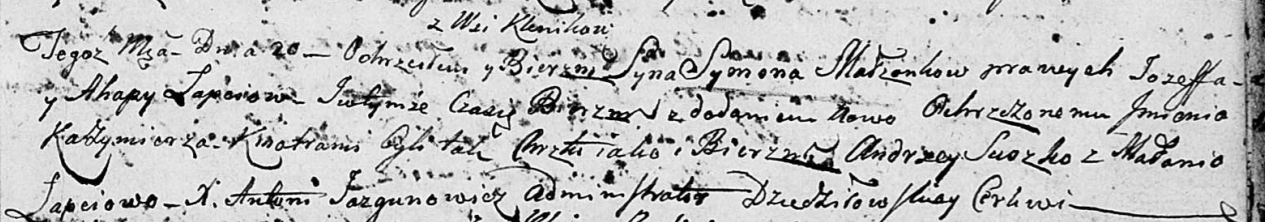 z Wsi Klenikow
Tegoż Mca Dnia 20 – Ochrzciłem y Bierzm Syna Symona Małzonkow prawych Jozeffa
y Ahapy Łapciow – Iwtymże Czasie Bierzm z dodaniem Nowo Ochrzczonemu Jmienia
Kazymierza – Kmotrami byli tak Chrztu iako i Bierzm Andrzey Suszko z Małanio
Łapciowo – X. Antoni Jazgunowicz Administrator Dziedziłowskiey Cerkwi